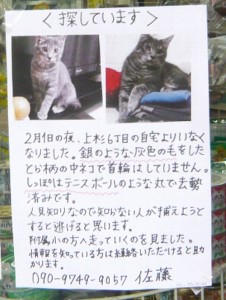 ＜探しています＞
2月1日の夜、上杉6丁目の自宅よりいなく
なりました。銀のような灰色の毛をした
とら柄の中ネコで首輪はしていません。
しっぽはテニスボールのような丸で去勢
済みです。
人見知りなので知らない人が捕えようと
すると逃げると思います。
附属小の方へ走っていくのを見ました。
情報を知っている方は連絡いただけると助
かります。
090-9749-9057 佐藤